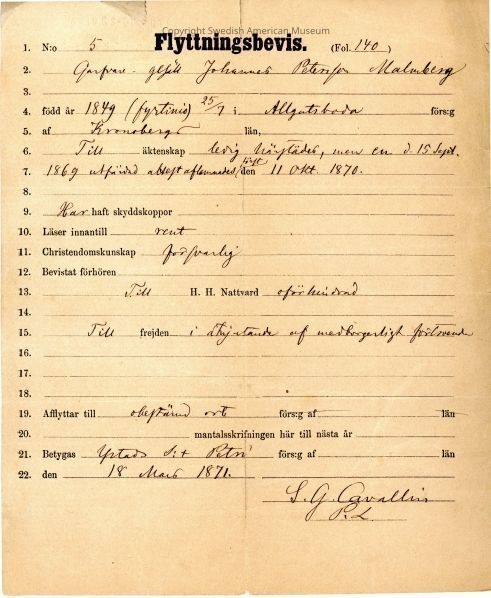 Copyright Swedish American Museum
Flyttningsbevis.
1. N:o 5 (Fol. 140)
2. Garfvare-gesäll Johannes Petersson Malmberg
3.
4. född år 1849 (fyrtinio) 25/7 i Allgutsboda förs:g
5. af Kronobergs län,
6. Till äktenskap ledig härstädes, men en d. 15 Sept.
7. 1869 utfärdad attest aflemnades först den 11 Okt. 1870.
8.
9. Har haft skyddskoppor
10. Läser innantill rent
11. Christendomskunskap försvarlig
12. Bevistat förhören
13. Till H. H. Nattvard oförhindrad
14.
15. Till frejden i åtnjutande af medborgerligt förtroende
16.
17.
18.
19. Afflyttar till obestämd ort förs:g af län
20. mantalsskrifningen här till nästa år
21. Betygas Ystads S:t Petri förs:g af län
22. den 18 Mars 1871.
S. G. Cavallin
P. L.